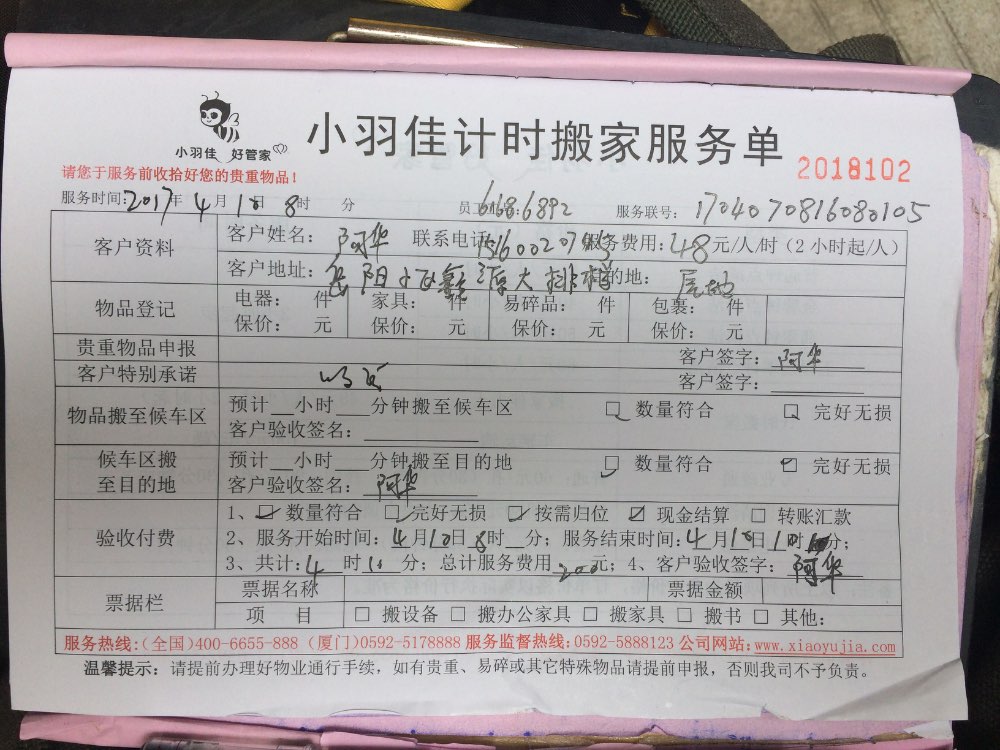 小羽佳 好管家
小羽佳计时搬家服务单
2018102
请您于服务前收拾好您的贵重物品！
服务时间：2017年4月10日8时 分 员工 6686892 服务联号：1704070816080105
客户资料 客户姓名：阿华 联系电话 服务费用：48元/人/时（2小时起/人）
客户地址： 阳小区 源大排档 的地：
物品登记 电器： 件 家具： 件 易碎品： 件 包裹： 件
保价： 元 保价： 元 保价： 元 保价： 元
贵重物品申报 客户签字：阿华
客户特别承诺 客户签字：
物品搬至候车区 预计__小时___分钟搬至候车区 □ 数量符合 □ 完好无损
客户验收签名：
候车区搬至目的地 预计__小时___分钟搬至目的地 □ 数量符合 □ 完好无损
客户验收签名：阿华
验收付费 1、☑ 数量符合 ☑ 完好无损 ☑ 按需归位 ☑ 现金结算 □ 转账汇款
2、服务开始时间：4月10日8时__分；服务结束时间：4月10日 时 分；
3、共计：4时10分；总计服务费用200元；4、客户验收签字：阿华
票据栏 票据名称 票据金额
项 目 □ 搬设备 □ 搬办公家具 □ 搬家具 □ 搬书 □ 其他：
服务热线：（全国）400-6655-888（厦门）0592-5178888 服务监督热线：0592-5888123 公司网站：www.xiaoyujia.com
温馨提示：请提前办理好物业通行手续，如有贵重、易碎或其它特殊物品请提前申报，否则我司不予负责。